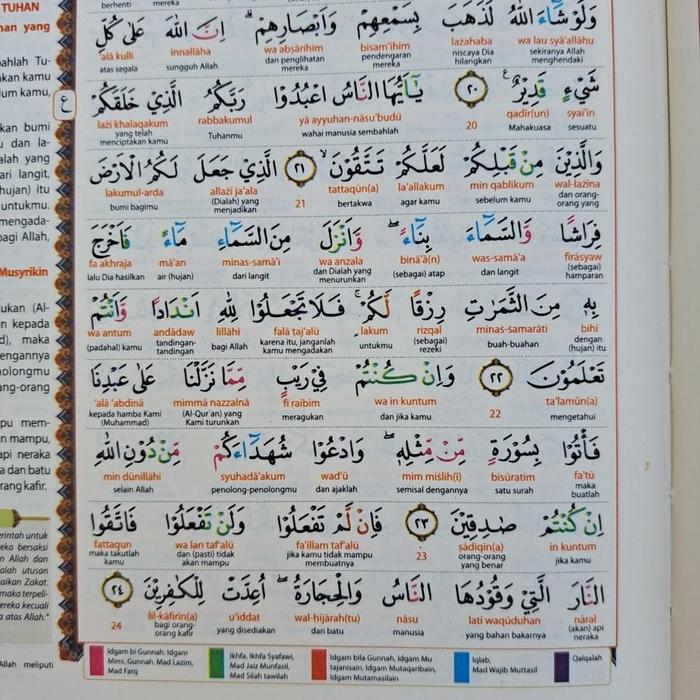 TUHAN
an yang
ahlah Tu-
akan kamu
lum kamu,
kan bumi
u dan la-
alah yang
ari langit,
hujan) itu
untukmu.
mengada-
bagi Allah,
Musyrikin
ukan (Al-
n kepada
d), maka
engannya
nolongmu
ang-orang
pu mem-
n mampu,
api neraka
a dan batu
rang kafir.
erintah untuk
eka bersaksi
n Allah dan
alah utusan
aikan Zakat.
maka terpeli-
ereka kecuali
a atas Allah."
Allah meliputi
berhenti mereka
وَلَوْ شَآءَ اللّٰهُ لَذَهَبَ بِسَمْعِهِمْ وَاَبْصَارِهِمْ ۗ اِنَّ اللّٰهَ عَلٰى كُلِّ
wa lau syā'allāhu lażahaba bisam'ihim wa abṣārihim innallāha 'alā kulli
sekiranya Allah menghendaki niscaya Dia hilangkan pendengaran mereka dan penglihatan mereka sungguh Allah atas segala
شَيْءٍ قَدِيْرٌ ࣖ ٢٠ يٰٓاَيُّهَا النَّاسُ اعْبُدُوْا رَبَّكُمُ الَّذِيْ خَلَقَكُمْ
ع
syai'in qadīr(un) 20 yā ayyuhan-nāsu'budū rabbakumul lażī khalaqakum
sesuatu Mahakuasa wahai manusia sembahlah Tuhanmu yang telah menciptakan kamu
وَالَّذِيْنَ مِنْ قَبْلِكُمْ لَعَلَّكُمْ تَتَّقُوْنَ ۙ ٢١ الَّذِيْ جَعَلَ لَكُمُ الْاَرْضَ
wal-lażīna min qablikum la'allakum tattaqūn(a) 21 allażī ja'ala lakumul-arḍa
dan orang-orang yang sebelum kamu agar kamu bertakwa (Dialah) yang menjadikan bumi bagimu
فِرَاشًا وَّالسَّمَآءَ بِنَآءً ۖ وَّاَنْزَلَ مِنَ السَّمَآءِ مَآءً فَاَخْرَجَ
firāsyaw was-samā'a binā'ā(n) wa anzala minas-samā'i mā'an fa akhraja
(sebagai) hamparan dan langit (sebagai) atap dan Dialah yang menurunkan dari langit air (hujan) lalu Dia hasilkan
بِهٖ مِنَ الثَّمَرٰتِ رِزْقًا لَّكُمْ ۚ فَلَا تَجْعَلُوْا لِلّٰهِ اَنْدَادًا وَّاَنْتُمْ
bihī minaś-śamarāti rizqal lakum falā taj'alū lillāhi andādaw wa antum
dengan (hujan) itu buah-buahan (sebagai) rezeki untukmu karena itu, janganlah kamu mengadakan bagi Allah tandingan-tandingan (padahal) kamu
تَعْلَمُوْنَ ٢٢ وَاِنْ كُنْتُمْ فِيْ رَيْبٍ مِّمَّا نَزَّلْنَا عَلٰى عَبْدِنَا
ta'lamūn(a) 22 wa in kuntum fī raibim mimmā nazzalnā 'alā 'abdinā
mengetahui dan jika kamu meragukan (Al-Qur'an) yang Kami turunkan kepada hamba Kami (Muhammad)
فَأْتُوْا بِسُوْرَةٍ مِّنْ مِّثْلِهٖ ۖ وَادْعُوْا شُهَدَآءَكُمْ مِّنْ دُوْنِ اللّٰهِ
fa'tū bisūratim mim miślih(ī) wad'ū syuhadā'akum min dūnillāhi
maka buatlah satu surah semisal dengannya dan ajaklah penolong-penolongmu selain Allah
اِنْ كُنْتُمْ صٰدِقِيْنَ ٢٣ فَاِنْ لَّمْ تَفْعَلُوْا وَلَنْ تَفْعَلُوْا فَاتَّقُوا
in kuntum ṣādiqīn(a) 23 fa'illam taf'alū wa lan taf'alū fattaqun
jika kamu orang-orang yang benar jika kamu tidak mampu membuatnya dan (pasti) tidak akan mampu maka takutlah kamu
النَّارَ الَّتِيْ وَقُوْدُهَا النَّاسُ وَالْحِجَارَةُ ۖ اُعِدَّتْ لِلْكٰفِرِيْنَ ٢٤
nāral latī waqūduhan nāsu wal-ḥijārah(tu) u'iddat lil-kāfirīn(a) 24
(akan) api neraka yang bahan bakarnya manusia dan batu yang disediakan bagi orang-orang kafir
Idgam bi Gunnah, Idgam Mimi, Gunnah, Mad Lazim, Mad Farq
Ikhfa, Ikhfa Syafawi, Mad Jaiz Munfasil, Mad Silah tawilah
Idgam bila Gunnah, Idgam Mutajanisain, Idgam Mutaqaribain, Idgam Mutamasilain
Iqlab, Mad Wajib Muttasil
Qalqalah